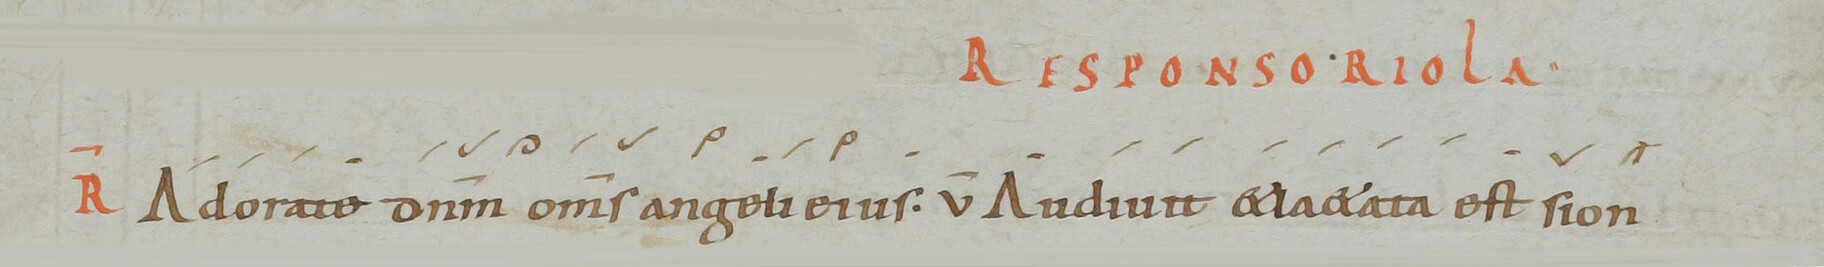 RESPONSO·RIOLA·
R̄ Adorate dnm̄ om̄s angeli eius: v̄ Audiuit &laetata est sion